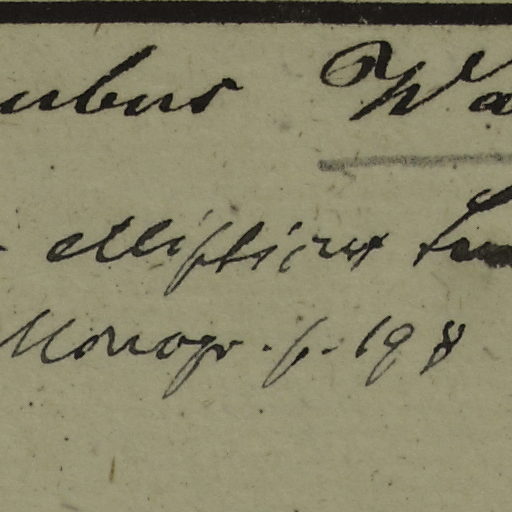 ubus Wa
ellipticus
Monogr. p. 198